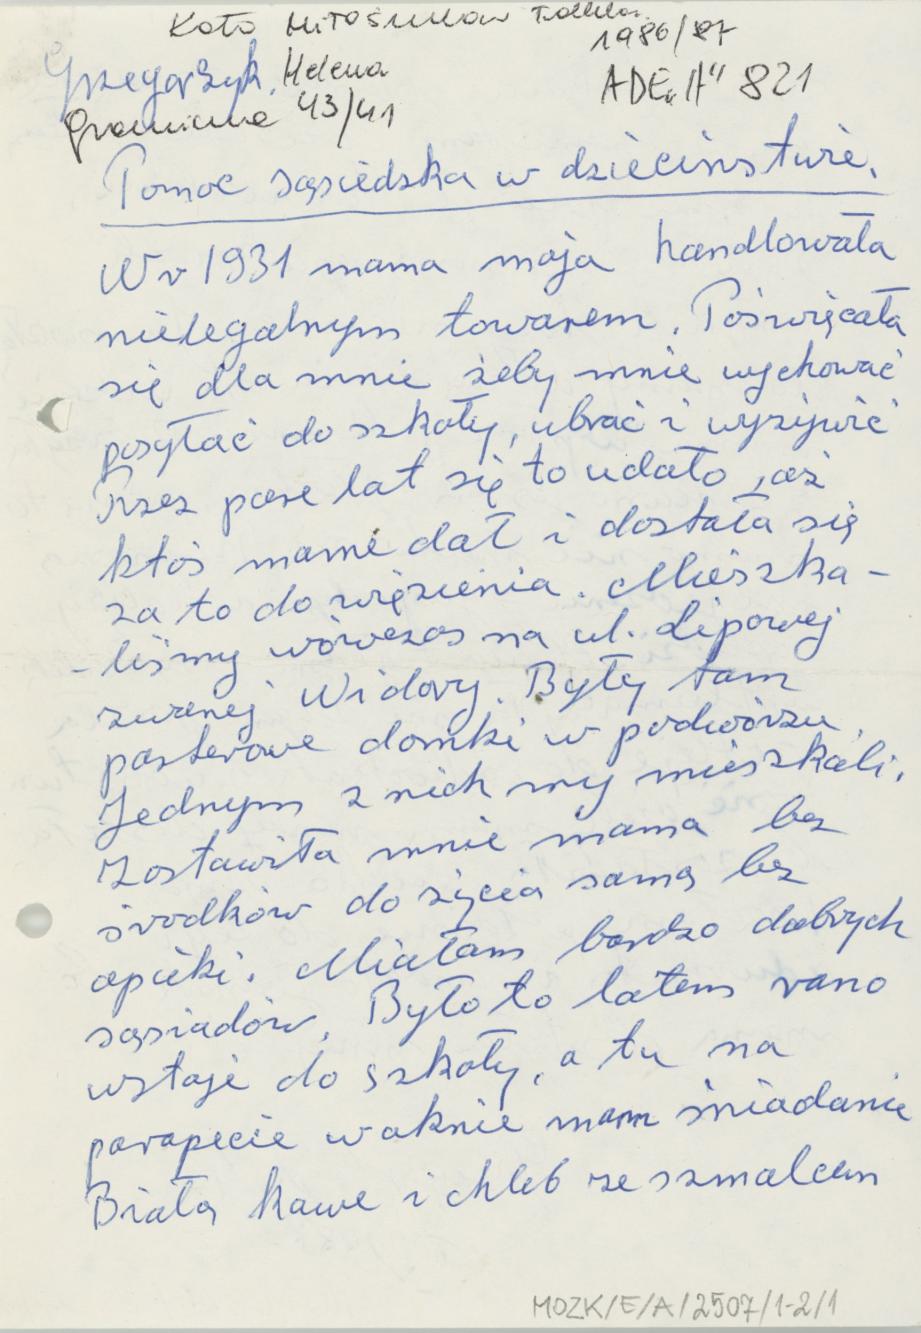 Koło Miłośników Folklor.
1986/87
Grzegorzyk, Helena
ADE „A" 821
Graniczna 43/41
Pomoc sąsiedzka w dzieciństwie.
W r 1931 mama moja handlowała
nielegalnym towarem. Poświęcała
się dla mnie żeby mnie wychować
posyłać do szkoły, ubrać i wyżywić
Przez parę lat się to udało, aż
ktoś mamę dał i dostała się
za to do więzienia. Mieszka-
-liśmy wówczas na ul. Lipowej
zwanej Widory. Były tam
parterowe domki w podwórzu,
Jednym z nich my mieszkali.
Zostawiła mnie mama bez
środków do życia samą bez
opieki. Miałam bardzo dobrych
sąsiadów. Było to latem rano
wstaję do szkoły, a tu na
parapecie w oknie mam śniadanie
Białą kawę i chleb ze szmalcem
MOZK/E/A/2507/1-2/1